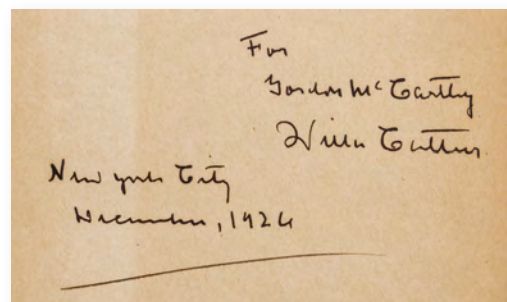 For
Gordon McCarthy
Willa Cather
New York City
December, 1926